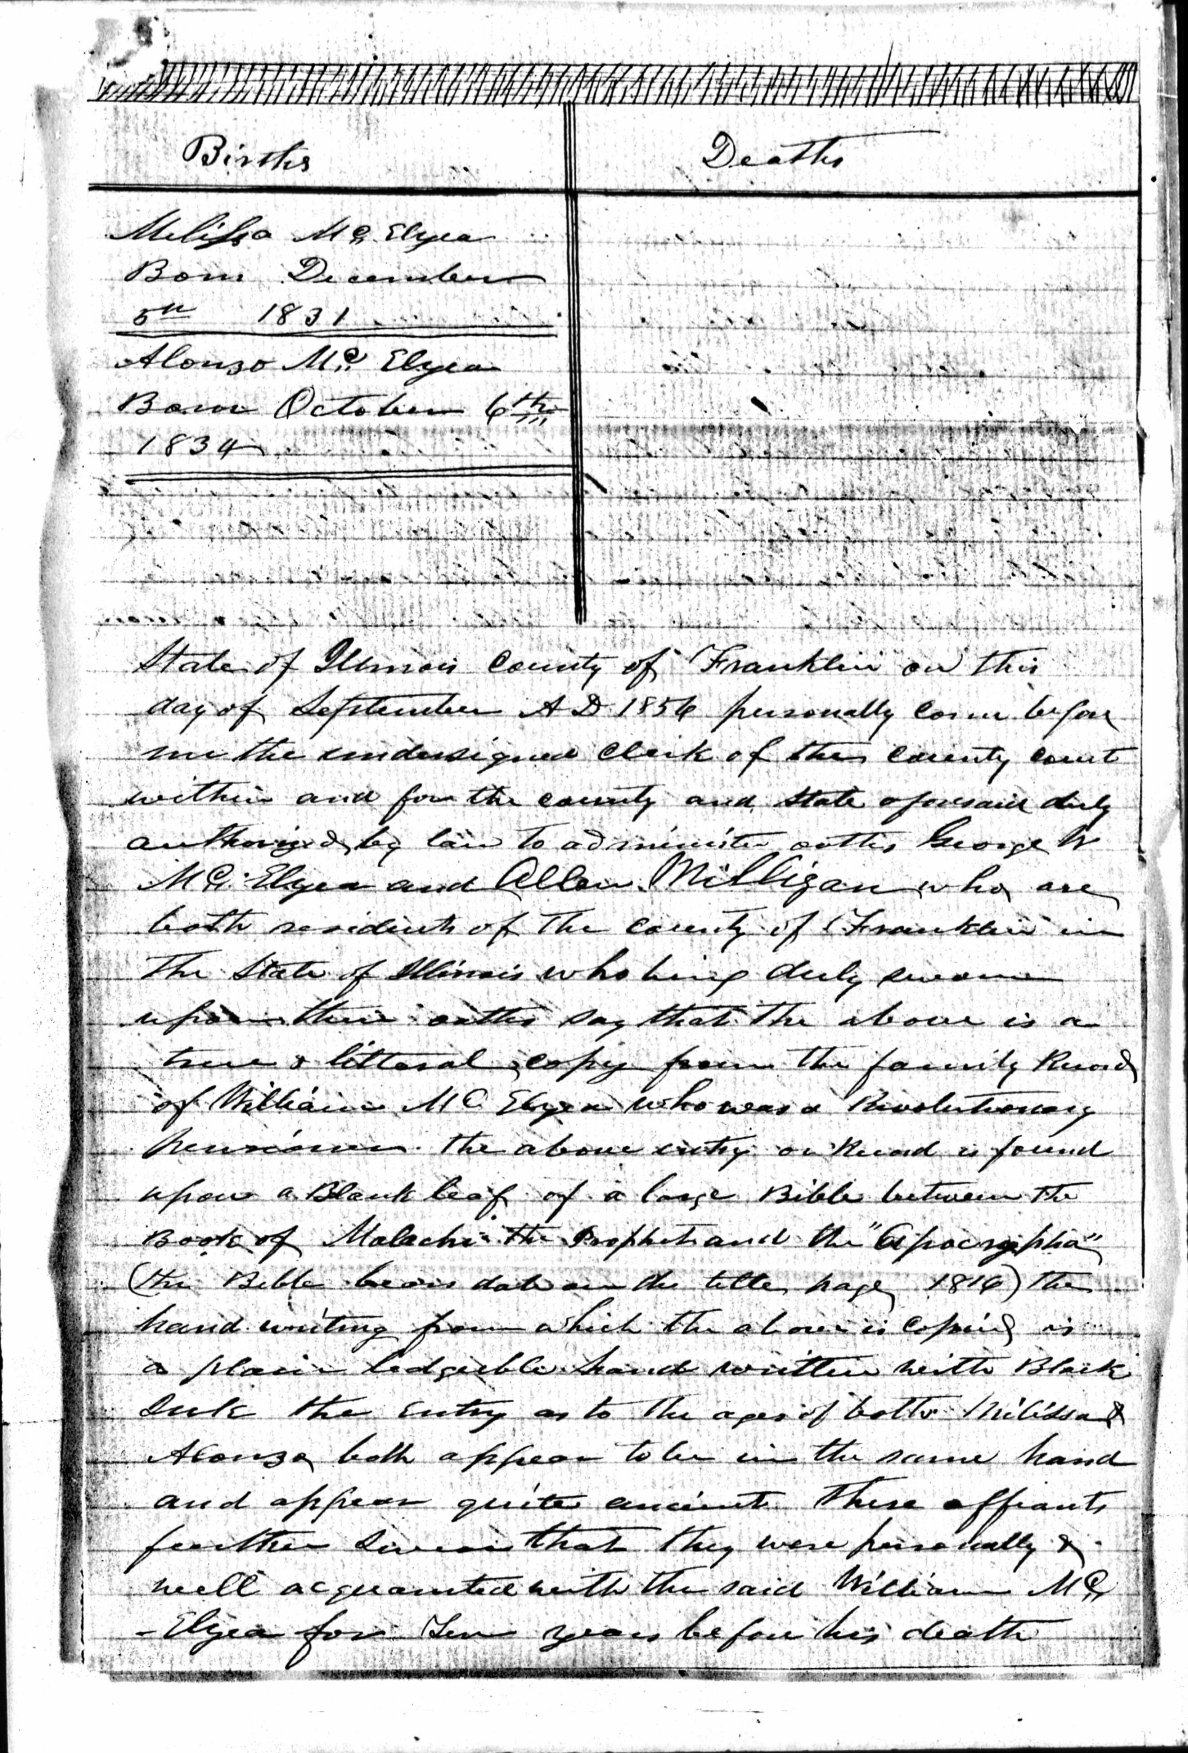 Births
Deaths
Melissa Mc Elyea
Born December
5th 1831
Alonso Mc Elyea
Born October 6th
1834
State of Illinois County of Franklin on this
day of September A D 1856 personally come before
me the undersigned Clerk of the County Court
within and for the county and state aforesaid duly
authorized by law to administer oaths George W
Mc Elyea and Allen Milligan who are
both residents of the County of Franklin in
the State of Illinois who being duly sworn
upon their oaths say that the above is a
true & litteral copy from the family Record
of William Mc Elyea who was a Revolutionary
Pensioner the above entry or Record is found
upon a Blank leaf of a large Bible between the
Book of Malachi the Prophet and the "Apocrypha"
(the Bible bears date on the title page 1816) the
hand writing from which the above is copied is
a plain ledgeble hand written with Black
Ink the Entry as to the ages of both Milissa &
Alonzo both appear to be in the same hand
and appear quite ancient these affiants
further swear that they were personally &
well acquainted with the said William Mc
-Elyea for Ten years before his death